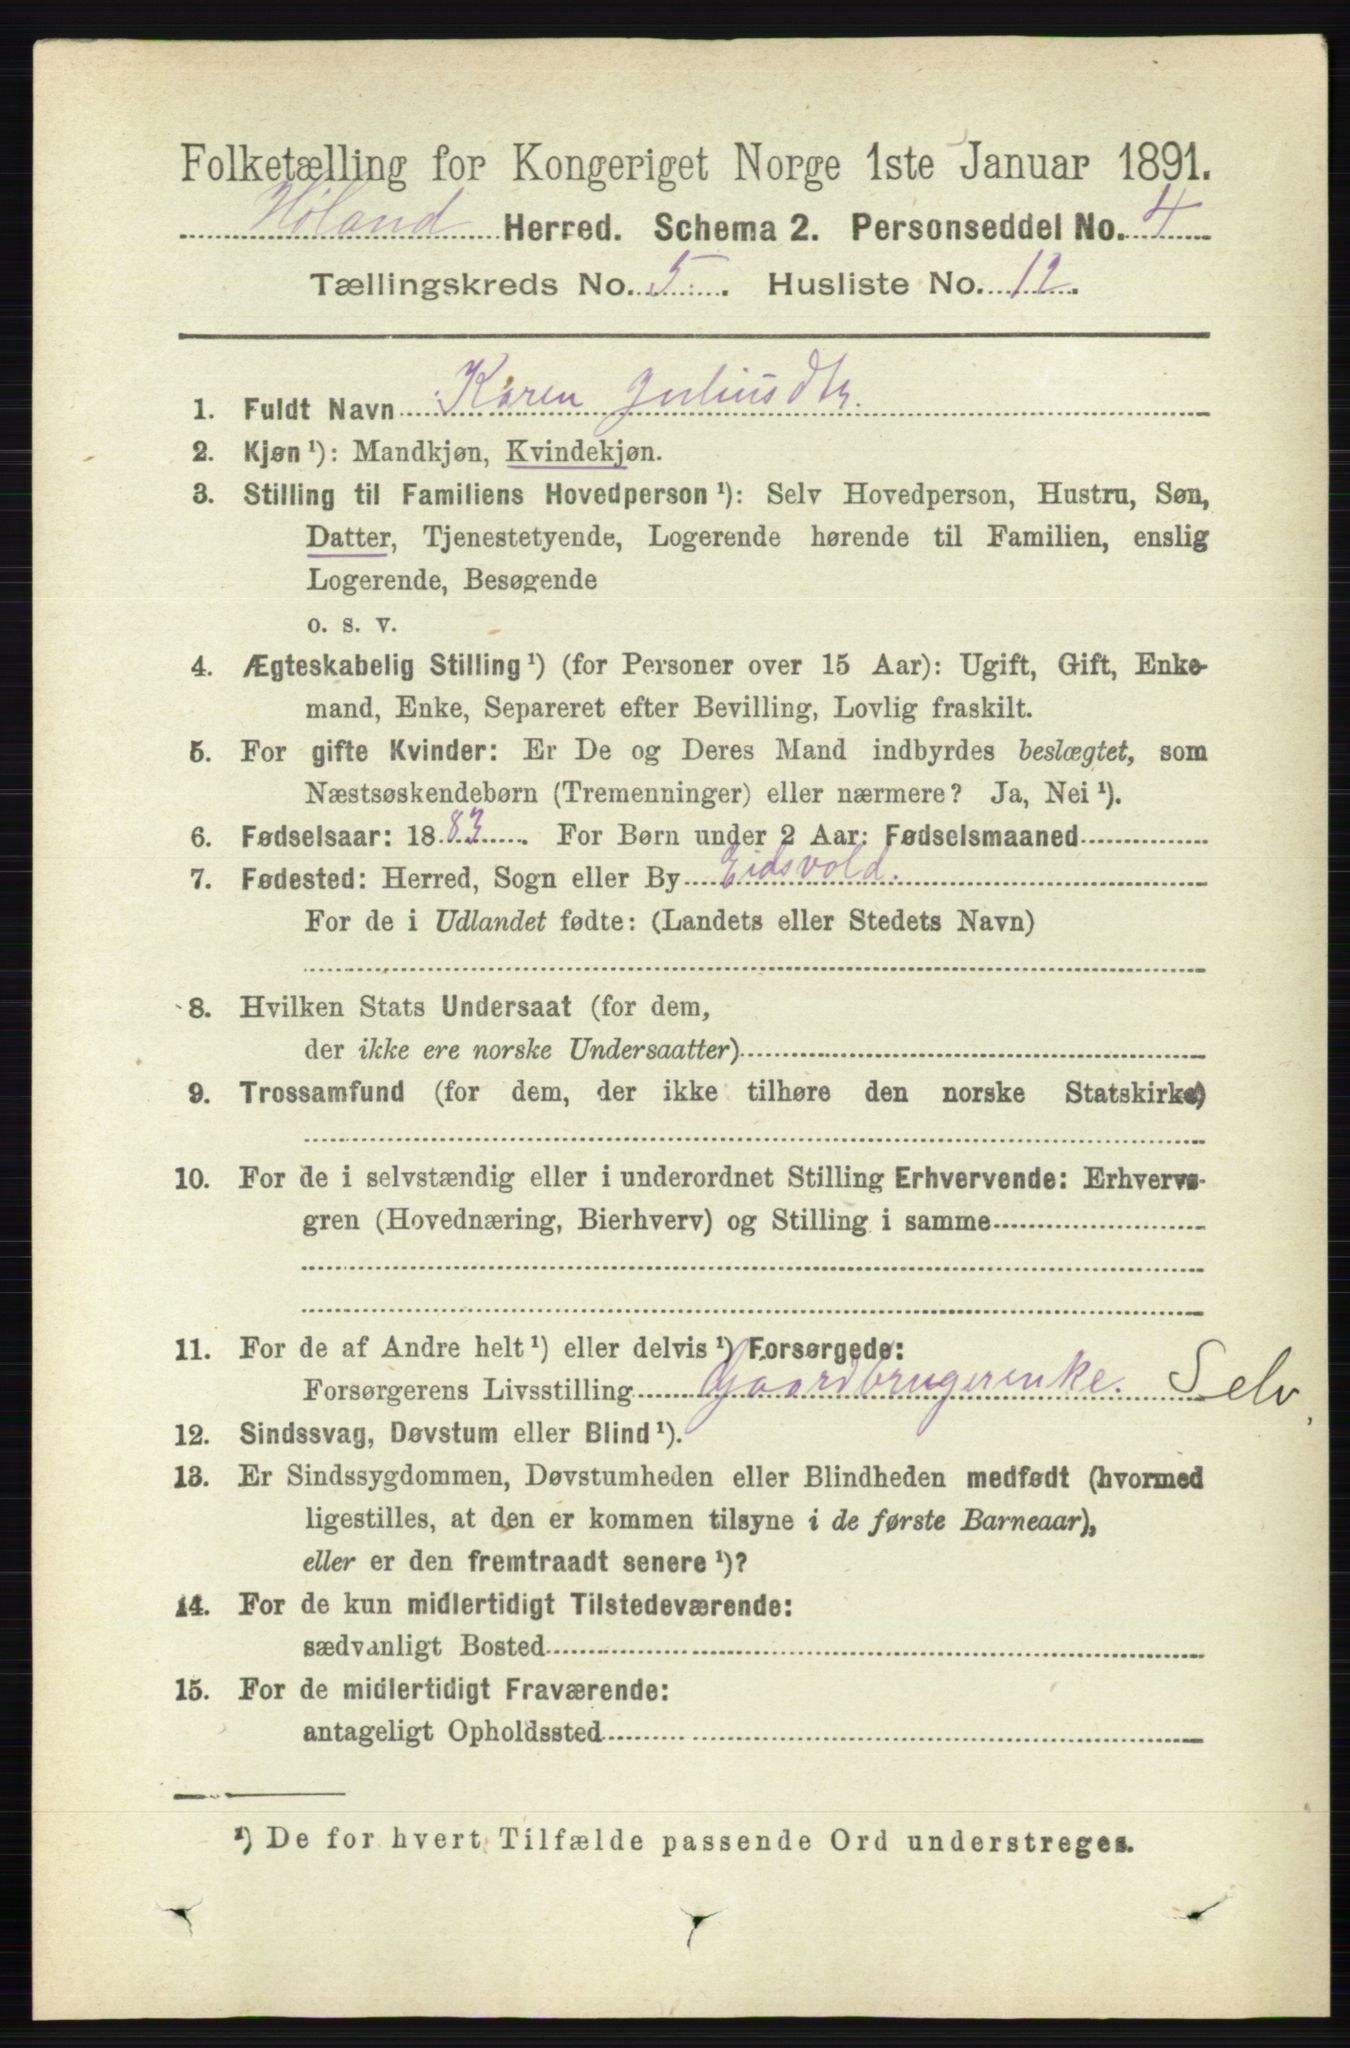 Folketælling for Kongeriget Norge 1ste Januar 1891.
Høland Herred. Schema 2. Personseddel No. 4
Tællingskreds No. 5. Husliste No. 12.
1. Fuldt Navn Karen Juliusdtr.
2. Kjøn ¹): Mandkjøn, Kvindekjøn.
3. Stilling til Familiens Hovedperson ¹): Selv Hovedperson, Hustru, Søn,
Datter, Tjenestetyende, Logerende hørende til Familien, enslig
Logerende, Besøgende
o. s. v.
4. Ægteskabelig Stilling ¹) (for Personer over 15 Aar): Ugift, Gift, Enke-
mand, Enke, Separeret efter Bevilling, Lovlig fraskilt.
5. For gifte Kvinder: Er De og Deres Mand indbyrdes beslægtet, som
Næstsøskendebørn (Tremenninger) eller nærmere? Ja, Nei ¹).
6. Fødselsaar: 1883. For Børn under 2 Aar: Fødselsmaaned
7. Fødested: Herred, Sogn eller By Eidsvold.
For de i Udlandet fødte: (Landets eller Stedets Navn)
8. Hvilken Stats Undersaat (for dem,
der ikke ere norske Undersaatter)
9. Trossamfund (for dem, der ikke tilhøre den norske Statskirke)
10. For de i selvstændig eller i underordnet Stilling Erhvervende: Erhvervs-
gren (Hovednæring, Bierhverv) og Stilling i samme
11. For de af Andre helt ¹) eller delvis ¹) Forsørgede:
Forsørgerens Livsstilling Gaardbrugerenke. Selv,
12. Sindssvag, Døvstum eller Blind ¹).
13. Er Sindssygdommen, Døvstumheden eller Blindheden medfødt (hvormed
ligestilles, at den er kommen tilsyne i de første Barneaar),
eller er den fremtraadt senere ¹)?
14. For de kun midlertidigt Tilstedeværende:
sædvanligt Bosted
15. For de midlertidigt Fraværende:
antageligt Opholdssted
¹) De for hvert Tilfælde passende Ord understreges.